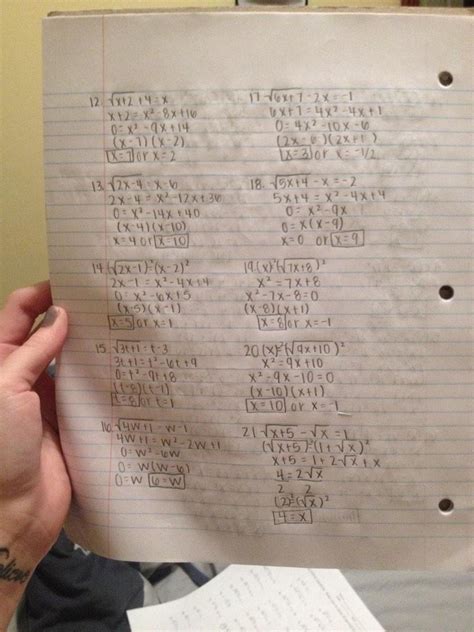 12. √x+2 +4=x
x+2 = x²-8x+16
0= x²-9x+14
(x-7)(x-2)
x=7 or x=2
13. √2x-4 = x-6
2x-4 = x²-12x+36
0= x²-14x+40
(x-4)(x-10)
x=4 or x=10
14. (√2x-1)²=(x-2)²
2x-1 = x²-4x+4
0= x²-6x+5
(x-5)(x-1)
x=5 or x=1
15. √3t+1 = t-3
3t+1 = t²-6t+9
0=t²-9t+8
(t-8)(t-1)
t=8 or t=1
16. √4w+1 = w-1
4w+1 = w²-2w+1
0= w²-6w
0= w(w-6)
0=w 6=w
17. √6x+7 -2x=-1
6x+7 = 4x²-4x+1
0= 4x²-10x-6
(2x-6)(2x+1)
x=3 or x=-1/2
18. √5x+4 -x=-2
5x+4 = x²-4x+4
0= x²-9x
0=x(x-9)
x=0 or x=9
19. (x)²=(√7x+8)²
x²=7x+8
x²-7x-8=0
(x-8)(x+1)
x=8 or x=-1
20. (x)²=(√9x+10)²
x²=9x+10
x²-9x-10=0
(x-10)(x+1)
x=10 or x=-1
21. √x+5 -√x =1
(√x+5)²=(1+√x)²
x+5 = 1+2√x+x
4=2√x
2 2
(2)²=(√x)²
4=x